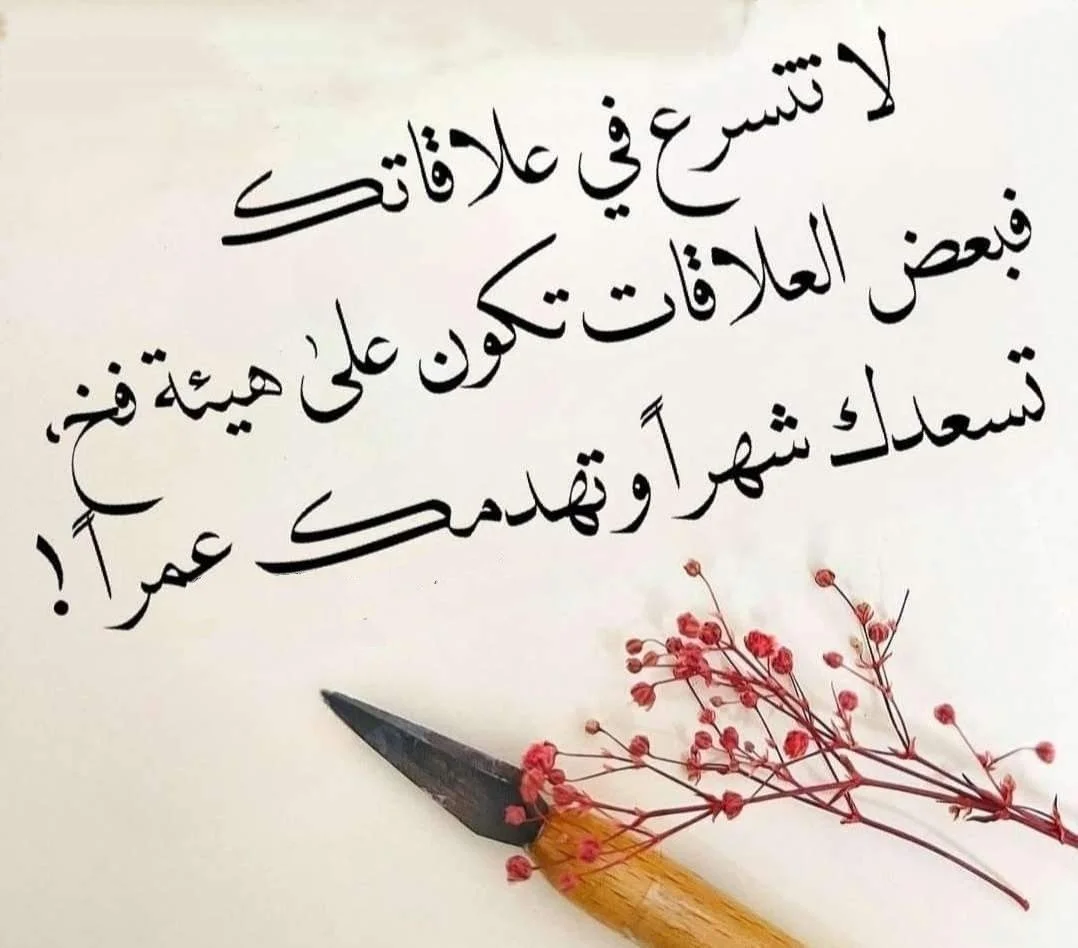 لا تتسرع في علاقاتك
فبعض العلاقات تكون على هيئة فخ،
تسعدك شهراً وتهدمك عمراً !